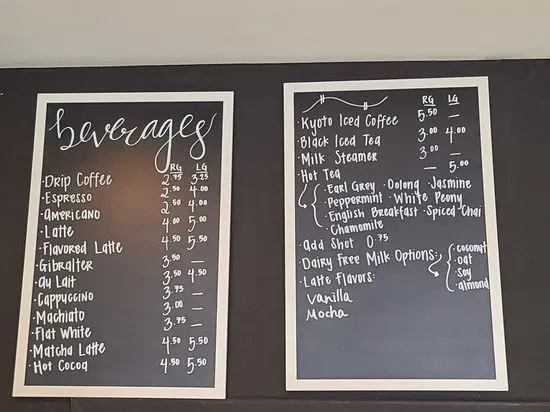 beverages
RG LG
·Drip Coffee 2.75 3.25
·Espresso 2.50 4.00
·Americano 2.50 4.00
·Latte 4.00 5.00
·Flavored Latte 4.50 5.50
·Gibralter 3.50 —
·Au Lait 3.50 4.50
·Cappuccino 3.75 —
·Machiato 3.00 —
·Flat White 3.75 —
·Matcha Latte 4.50 5.50
·Hot Cocoa 4.50 5.50
RG LG
·Kyoto Iced Coffee 5.50 —
·Black Iced Tea 3.00 4.00
·Milk Steamer 3.00 —
·Hot Tea — 5.00
·Earl Grey ·Oolong ·Jasmine
·Peppermint ·White Peony
·English Breakfast ·Spiced Chai
·Chamomile
·Add Shot 0.75
·Dairy Free Milk Options:
·coconut
·oat
·Soy
·almond
·Latte Flavors:
Vanilla
Mocha